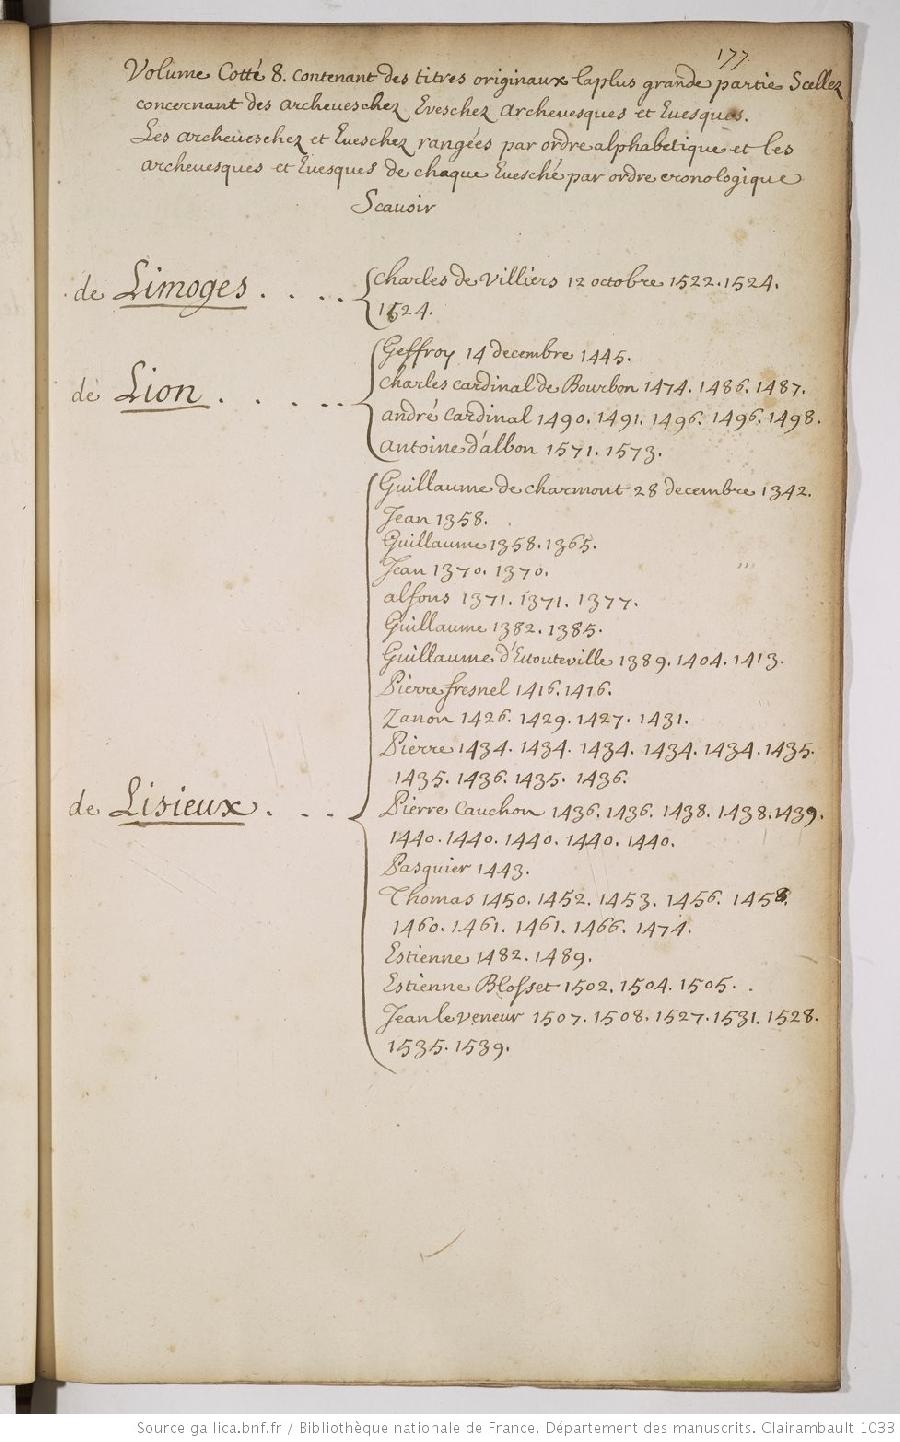 177
Volume Cotté 8. contenant des titres originaux la plus grande partie Scellez
concernant des archeueschez Eveschez Archevesques et Euesques.
Les archeueschez et Eueschez rangées par ordre alphabetique et les
archevesques et Euesques de chaque Euesché par ordre cronologique
Scauoir
de Limoges . . . . Charles de Villiers 12 octobre 1522. 1524.
1524.
Geffroy 14 decembre 1445.
de Lion . . . . . Charles cardinal de Bourbon 1474. 1486. 1487.
andré Cardinal 1490. 1491. 1496. 1496. 1498.
antoine d'albon 1571. 1573.
Guillaume de charmont 28 decembre 1342.
Jean 1358.
Guillaume 1358. 1365.
Jean 1370. 1370.
alfons 1371. 1371. 1377.
Guillaume 1382. 1385.
Guillaume d'Estouteville 1389. 1404. 1413.
Pierre fresnel 1416. 1416.
Zanon 1426. 1429. 1427. 1431.
Pierre 1434. 1434. 1434. 1434. 1434. 1435.
1435. 1436. 1435. 1436.
de Lisieux . . . Pierre Cauchon 1436. 1436. 1438. 1438. 1439.
1440. 1440. 1440. 1440. 1440.
Pasquier 1443.
Thomas 1450. 1452. 1453. 1456. 1458.
1460. 1461. 1461. 1466. 1474.
Estienne 1482. 1489.
Estienne Blosset 1502. 1504. 1505. .
Jean le Veneur 1507. 1508. 1527. 1531. 1528.
1535. 1539.
Source gallica.bnf.fr / Bibliothèque nationale de France. Département des manuscrits. Clairambault 1033